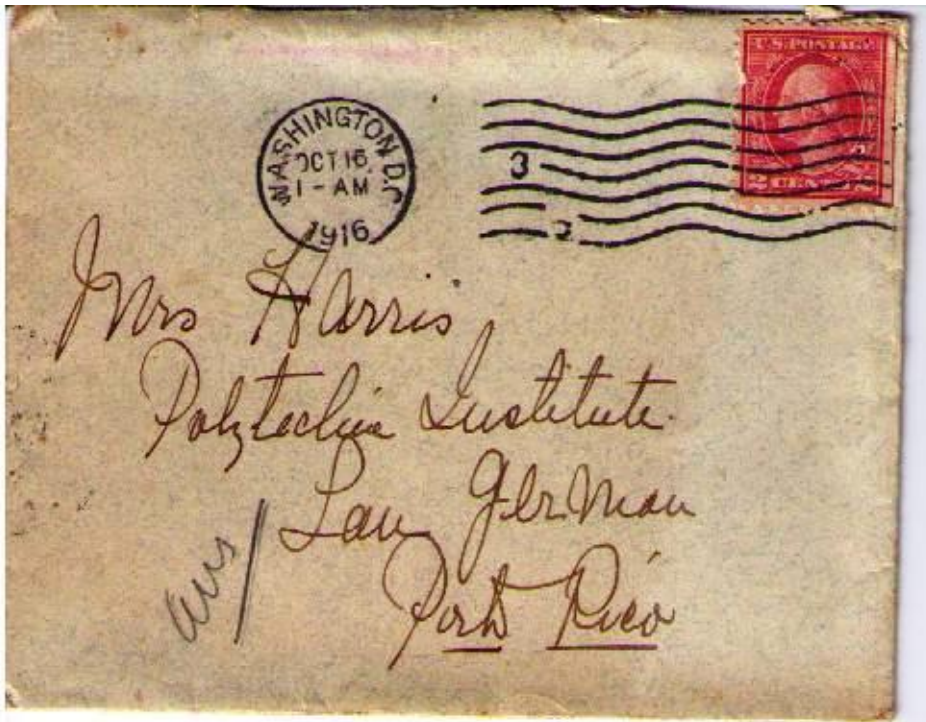 U.S. POSTAGE
2 CENTS 2
WASHINGTON D.C.
OCT 16
1 - AM
1916
3
2
Mrs Harris,
Polytechnic Institute.
San German
Porto Rico
ans/